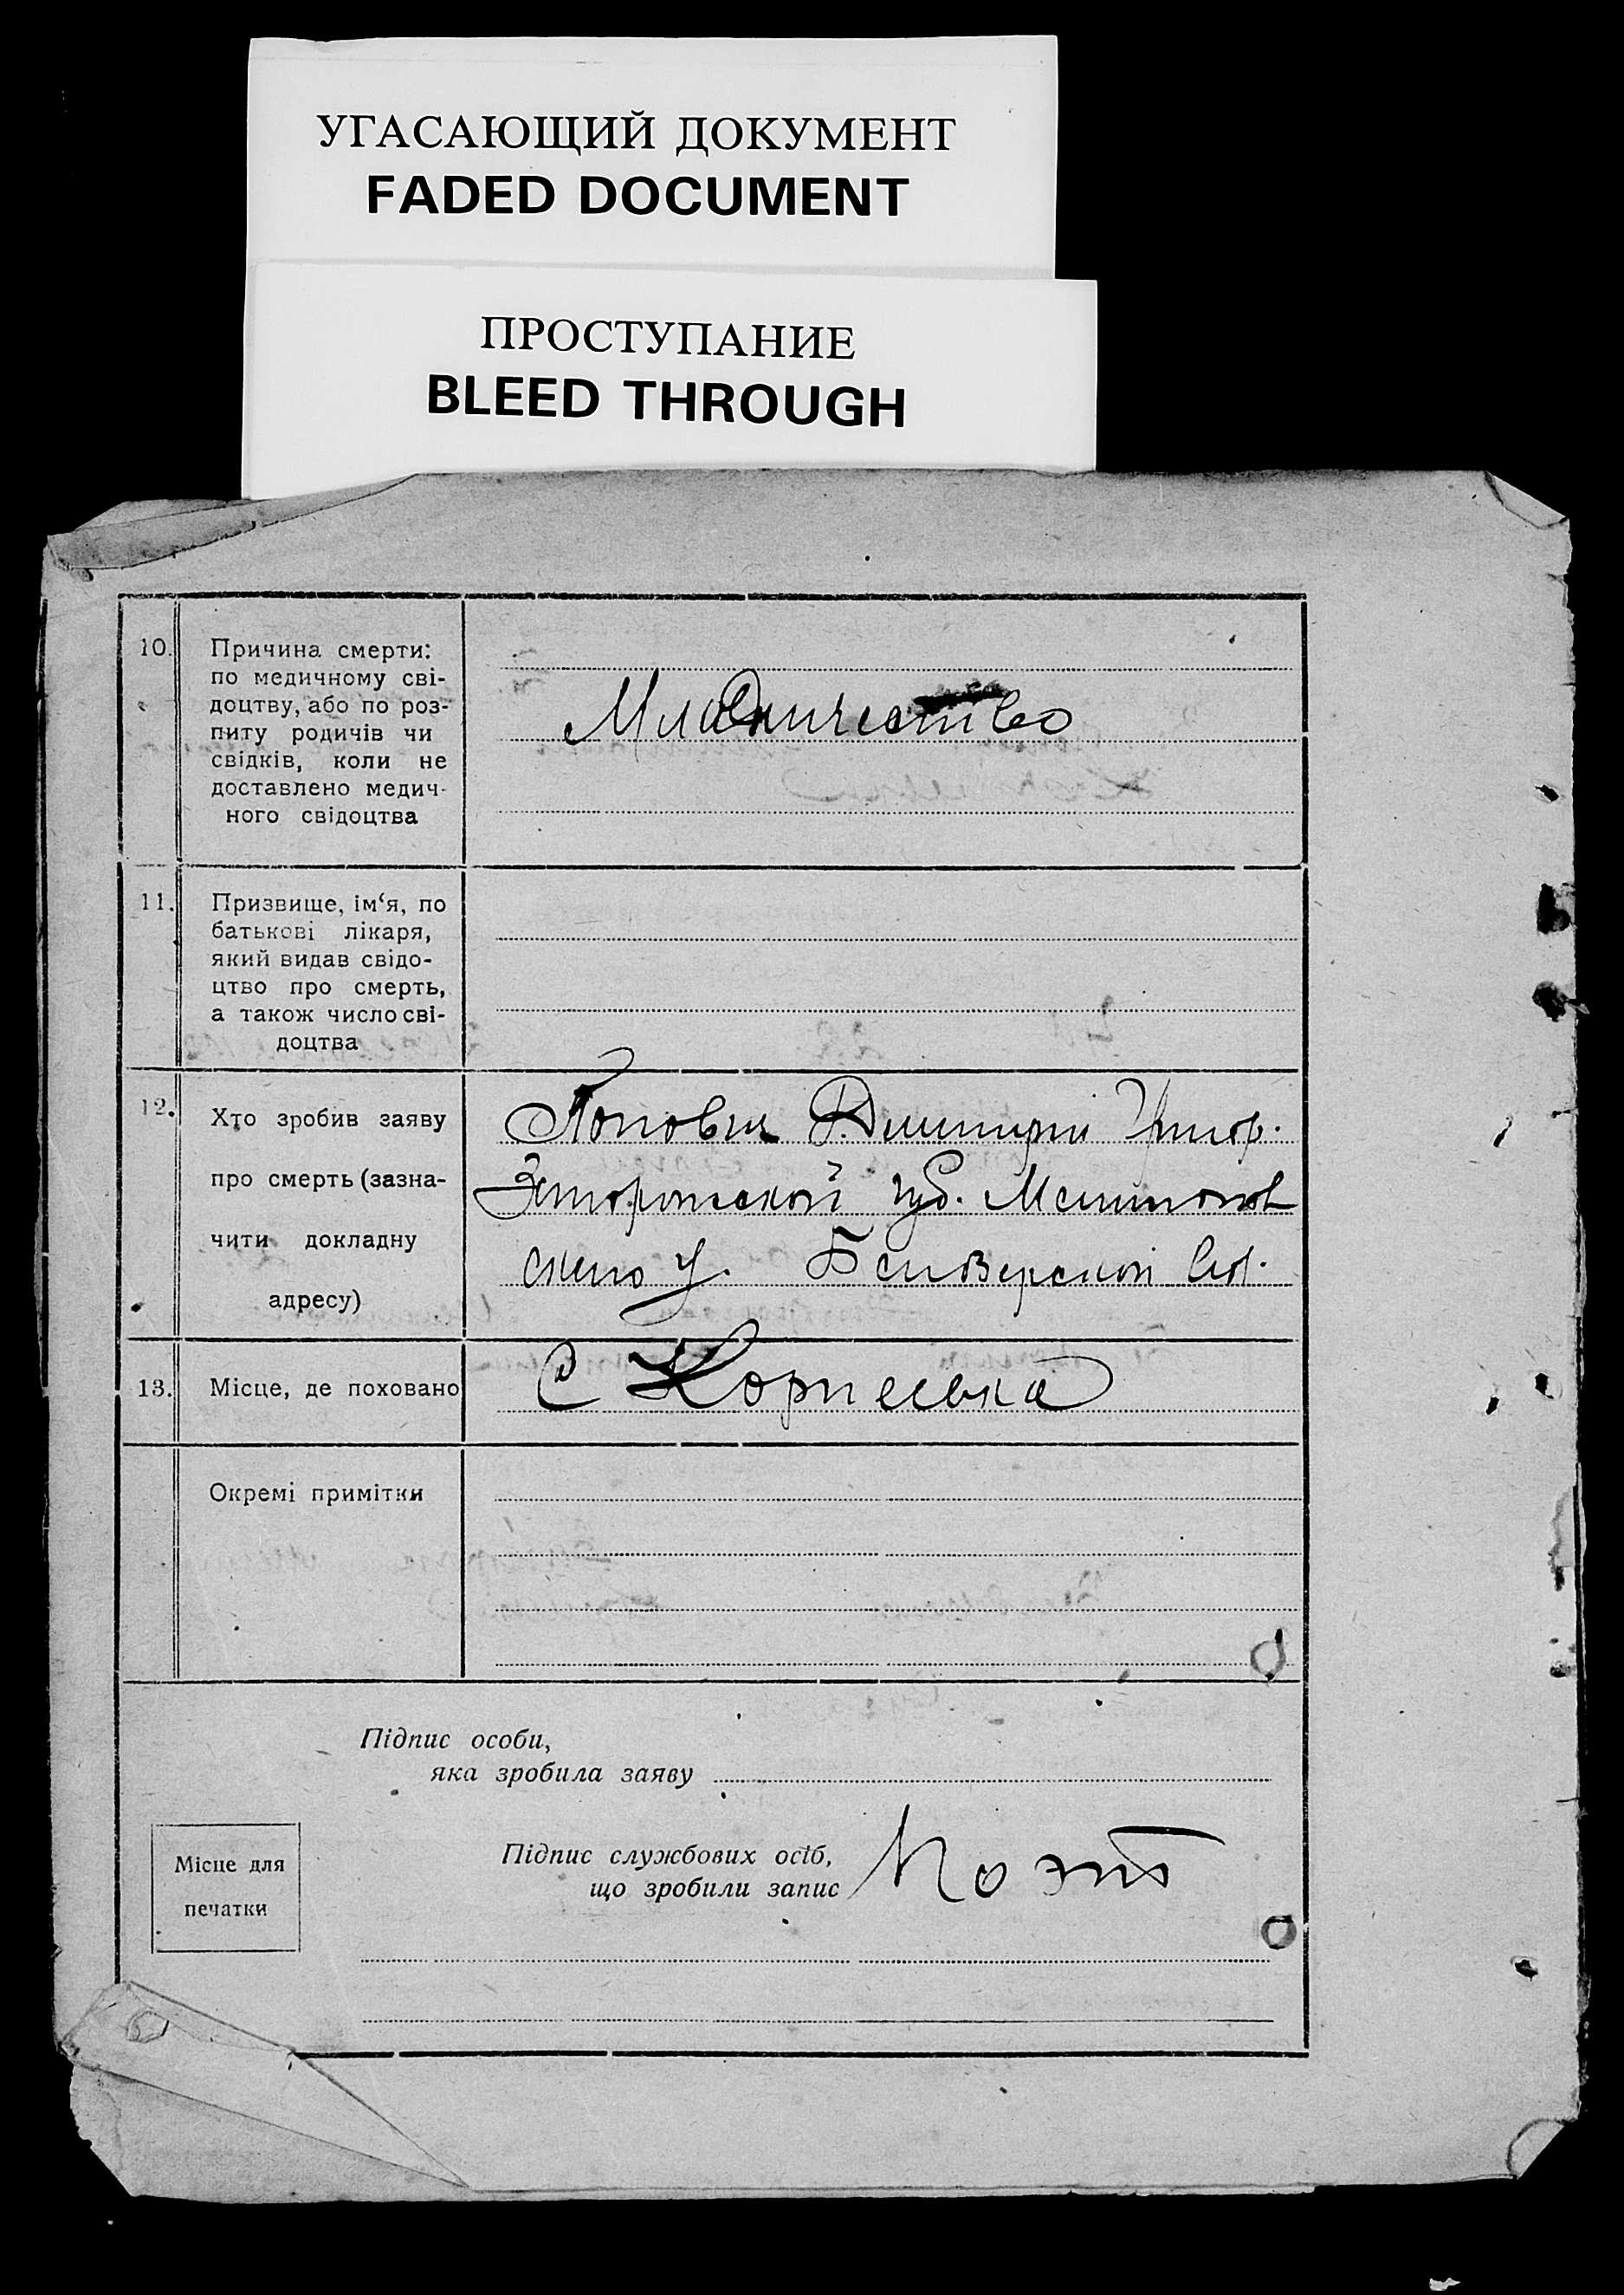 УГАСАЮЩИЙ ДОКУМЕНТ
FADED DOCUMENT
ПРОСТУПАНИЕ
BLEED THROUGH
10.
Причина смерти:
по медичному сві-
доцтву, або по роз-
питу родичів чи
свідків, коли не
доставлено медич-
ного свідоцтва
Младничество
11.
Призвище, ім‘я, по
батькові лікаря,
який видав свідо-
цтво про смерть,
а також число сві-
доцтва
12.
Хто зробив заяву
про смерть (зазна-
чити докладну
адресу)
Попович Дмитрій Григор.
губ.
ского у.
13.
Місце, де поховано
С Корнеевка
Окремі примітки
Підпис особи,
яка зробила заяву
Місце для
печатки
Підпис службових осіб,
що зробили запис